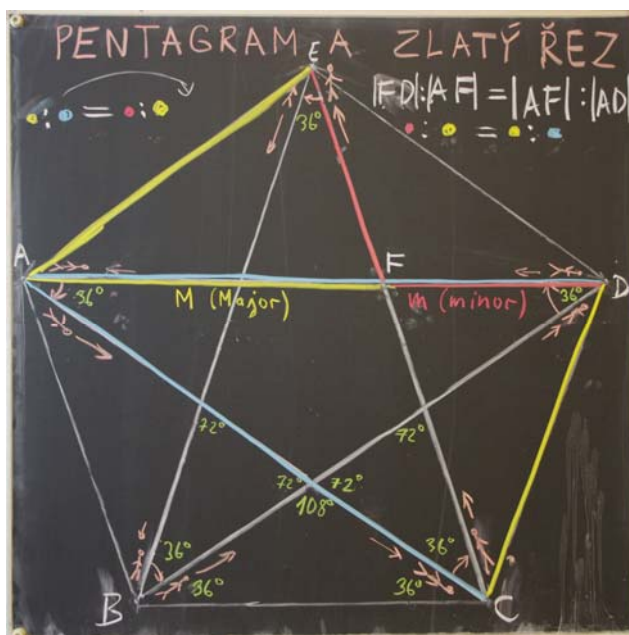 PENTAGRAM A ZLATÝ ŘEZ
E
|FD|:|AF|=|AF|:|AD|
: = :
: = :
36°
A
F
D
36°
M (Major)
m (minor)
36°
72°
72°
72°
72°
108°
36°
36°
36°
36°
B
C